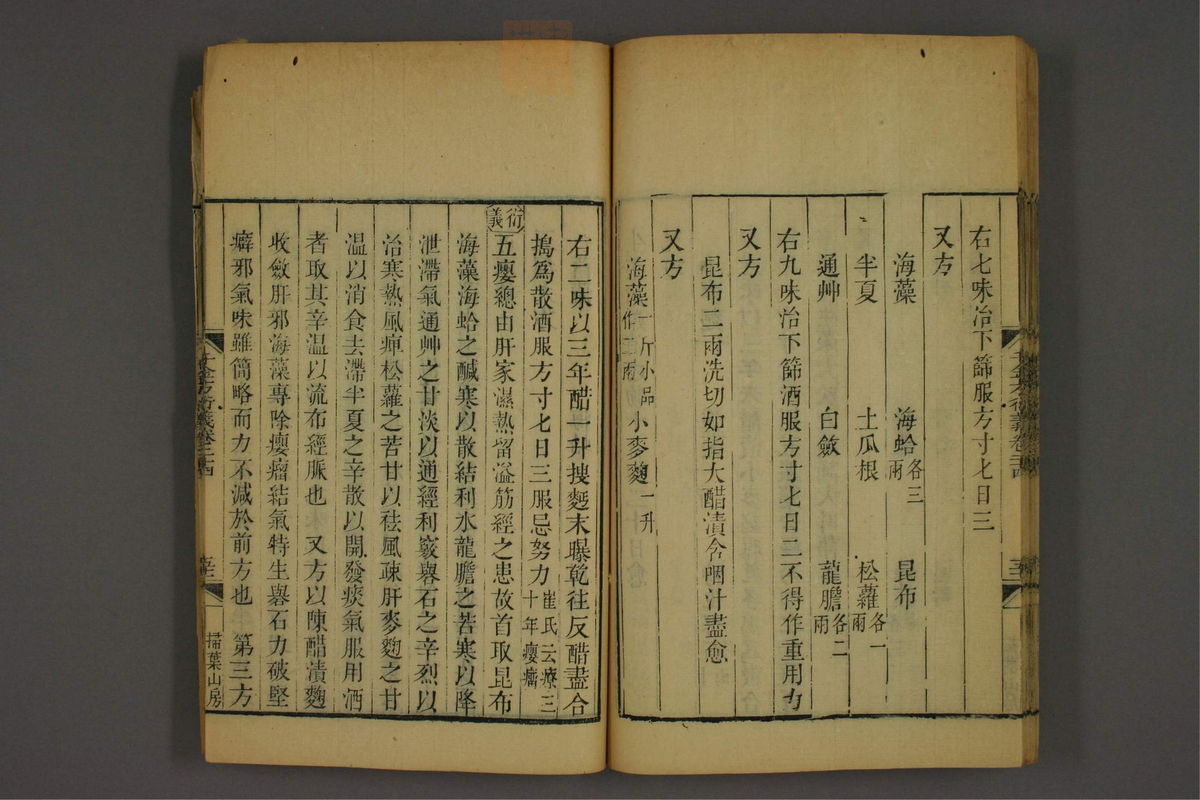 右七味治下篩服方寸匕日三
又方
海藻 海蛤各三兩 昆布
半夏 土瓜根 松蘿各一兩
通艸 白斂 龍膽各二兩
右九味治下篩酒服方寸匕日二不得作重用力
又方
昆布二兩洗切如指大醋漬含咽汁盡愈
又方
海藻一斤小品作三兩 小麥麴一升
右二味以三年醋一升搜麪末曝乾往反醋盡合
搗為散酒服方寸匕日三服忌努力崔氏云療三十年癭瘤
衍義
五癭總由肝家濕熱留溢筋經之患故首取昆布
海藻海蛤之鹹寒以散結利水龍膽之苦寒以降
泄滯氣通艸之甘淡以通經利竅礜石之辛烈以
治寒熱風痺松蘿之苦甘以祛風疎肝麥麴之甘
温以消食去滯半夏之辛散以開發痰氣服用酒
者取其辛温以流布經脈也 又方以陳醋漬麴
收斂肝邪海藻專除癭瘤結氣特生礜石力破堅
癖邪氣味雖簡略而力不減於前方也 第三方
千金方衍義卷二十四
掃葉山房